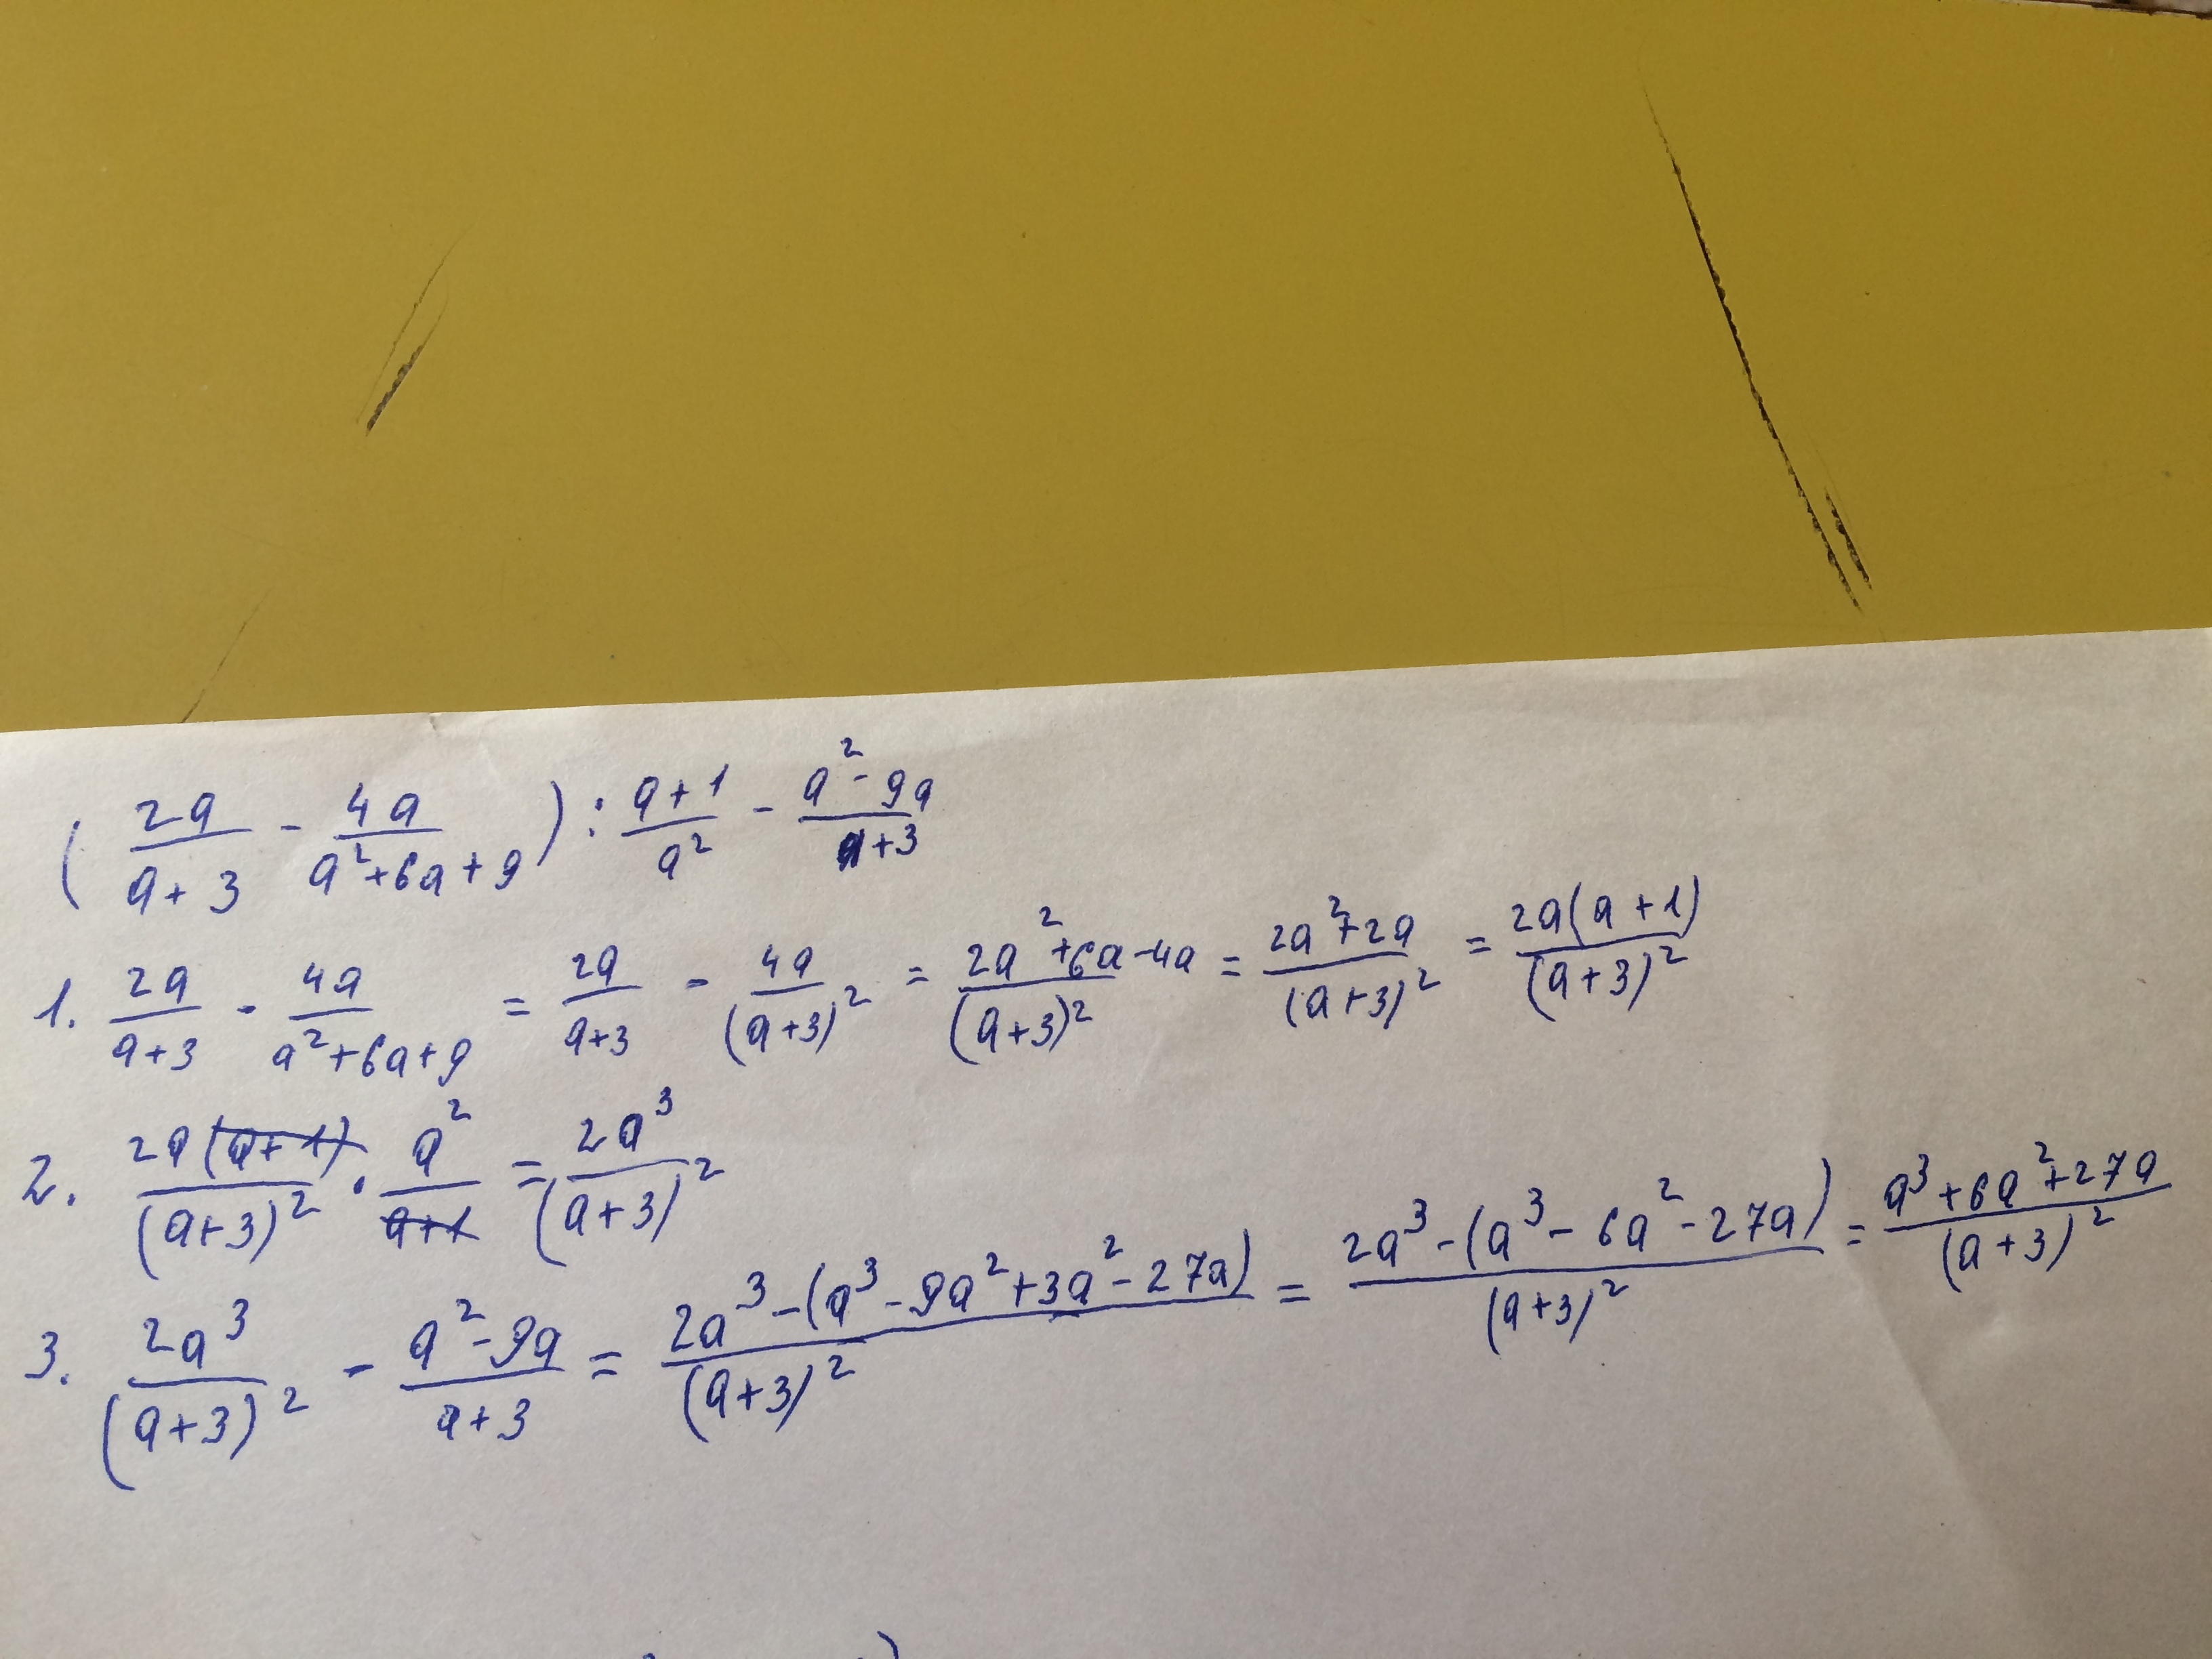 ( 2a/(a+3) - 4a/(a²+6a+9) ) : (a+1)/a² - (a²-9a)/(a+3)
1. 2a/(a+3) - 4a/(a²+6a+9) = 2a/(a+3) - 4a/(a+3)² = (2a²+6a-4a)/(a+3)² = (2a²+2a)/(a+3)² = 2a(a+1)/(a+3)²
2. 2a(a+1)/(a+3)² · a²/(a+1) = 2a³/(a+3)²
3. 2a³/(a+3)² - (a²-9a)/(a+3) = (2a³-(a³-9a²+3a²-27a))/(a+3)² = (2a³-(a³-6a²-27a))/(a+3)² = (a³+6a²+27a)/(a+3)²